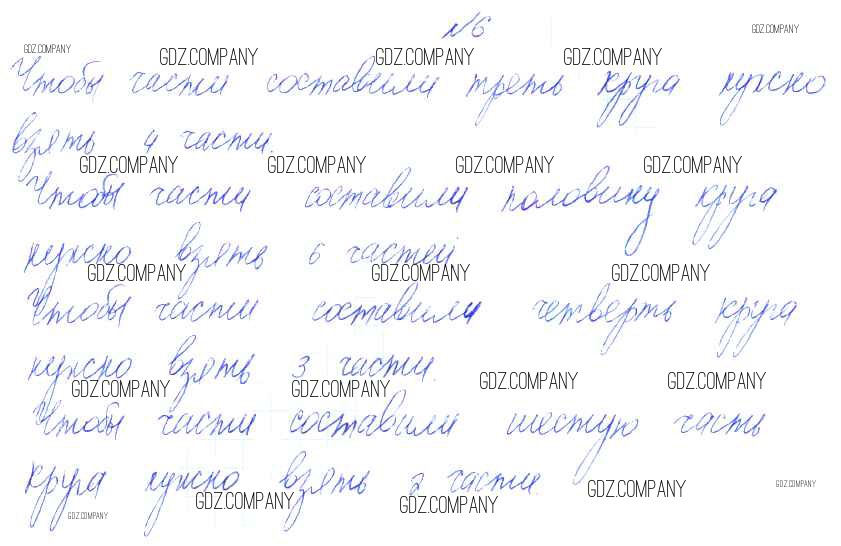 №6
GDZ.COMPANY
GDZ.COMPANY
GDZ.COMPANY GDZ.COMPANY GDZ.COMPANY
Чтобы части составили треть круга нужно
взять 4 части.
GDZ.COMPANY GDZ.COMPANY GDZ.COMPANY GDZ.COMPANY
Чтобы части составили половину круга
нужно взять 6 частей
GDZ.COMPANY GDZ.COMPANY GDZ.COMPANY
Чтобы части составили четверть круга
нужно взять 3 части.
GDZ.COMPANY GDZ.COMPANY GDZ.COMPANY GDZ.COMPANY
Чтобы части составили шестую часть
круга нужно взять 2 части.
GDZ.COMPANY GDZ.COMPANY GDZ.COMPANY GDZ.COMPANY
GDZ.COMPANY